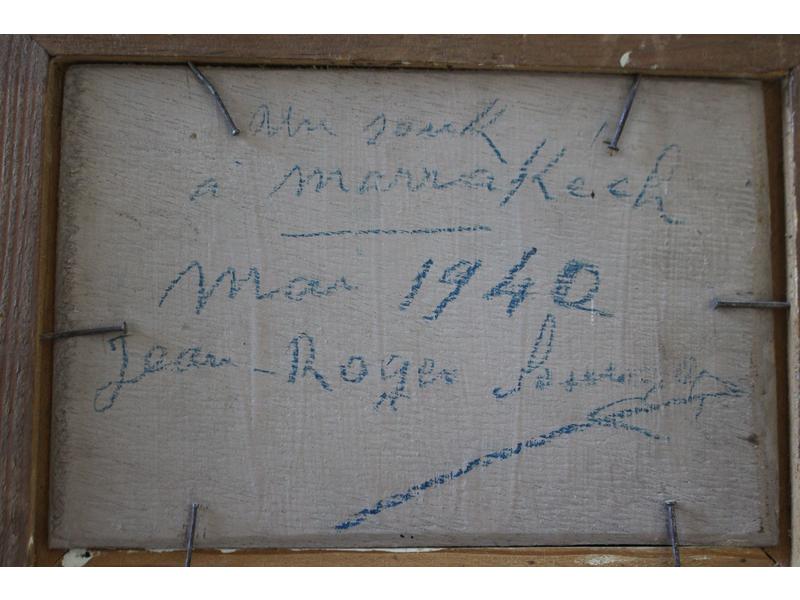 Un souk
à Marrakech
Mai 1940
Jean-Roger